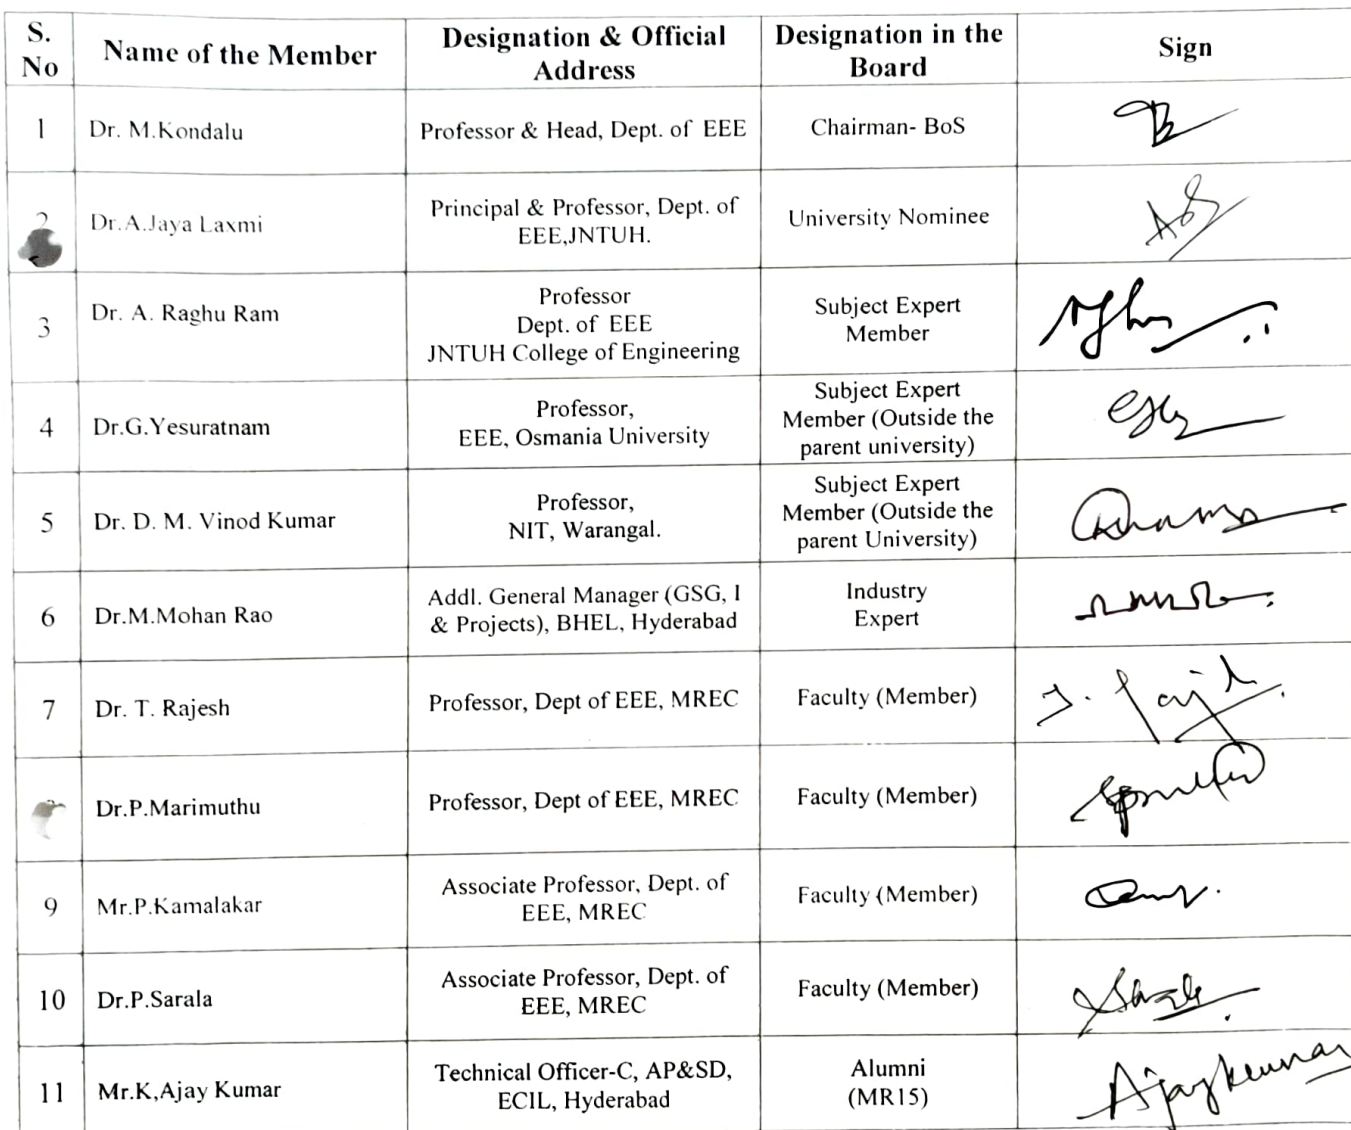 S.
No
Name of the Member
Designation & Official
Address
Designation in the
Board
Sign
1
Dr. M.Kondalu
Professor & Head, Dept. of EEE
Chairman- BoS
2
Dr.A.Jaya Laxmi
Principal & Professor, Dept. of
EEE,JNTUH.
University Nominee
3
Dr. A. Raghu Ram
Professor
Dept. of EEE
JNTUH College of Engineering
Subject Expert
Member
4
Dr.G.Yesuratnam
Professor,
EEE, Osmania University
Subject Expert
Member (Outside the
parent university)
5
Dr. D. M. Vinod Kumar
Professor,
NIT, Warangal.
Subject Expert
Member (Outside the
parent University)
6
Dr.M.Mohan Rao
Addl. General Manager (GSG, I
& Projects), BHEL, Hyderabad
Industry
Expert
7
Dr. T. Rajesh
Professor, Dept of EEE, MREC
Faculty (Member)
Dr.P.Marimuthu
Professor, Dept of EEE, MREC
Faculty (Member)
9
Mr.P.Kamalakar
Associate Professor, Dept. of
EEE, MREC
Faculty (Member)
10
Dr.P.Sarala
Associate Professor, Dept. of
EEE, MREC
Faculty (Member)
11
Mr.K,Ajay Kumar
Technical Officer-C, AP&SD,
ECIL, Hyderabad
Alumni
(MR15)
Ajaykumar